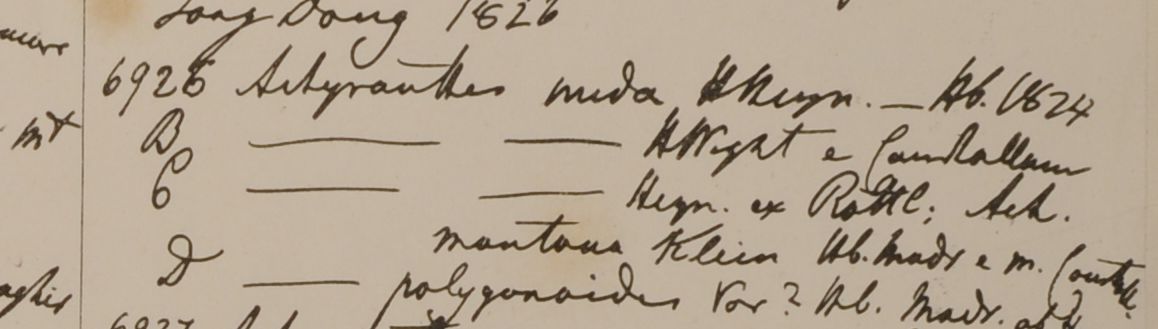 Tong Dong 1826
6925 Achyranthes nuda HHeyn. — Hb. 1824
B — — HWight e Courtallum
C — — Heyn. ex Rottl; Ach.
montana Klein Hb. Madr e m. Courtall.
D — polygonoides Var? Hb. Madr.
6927